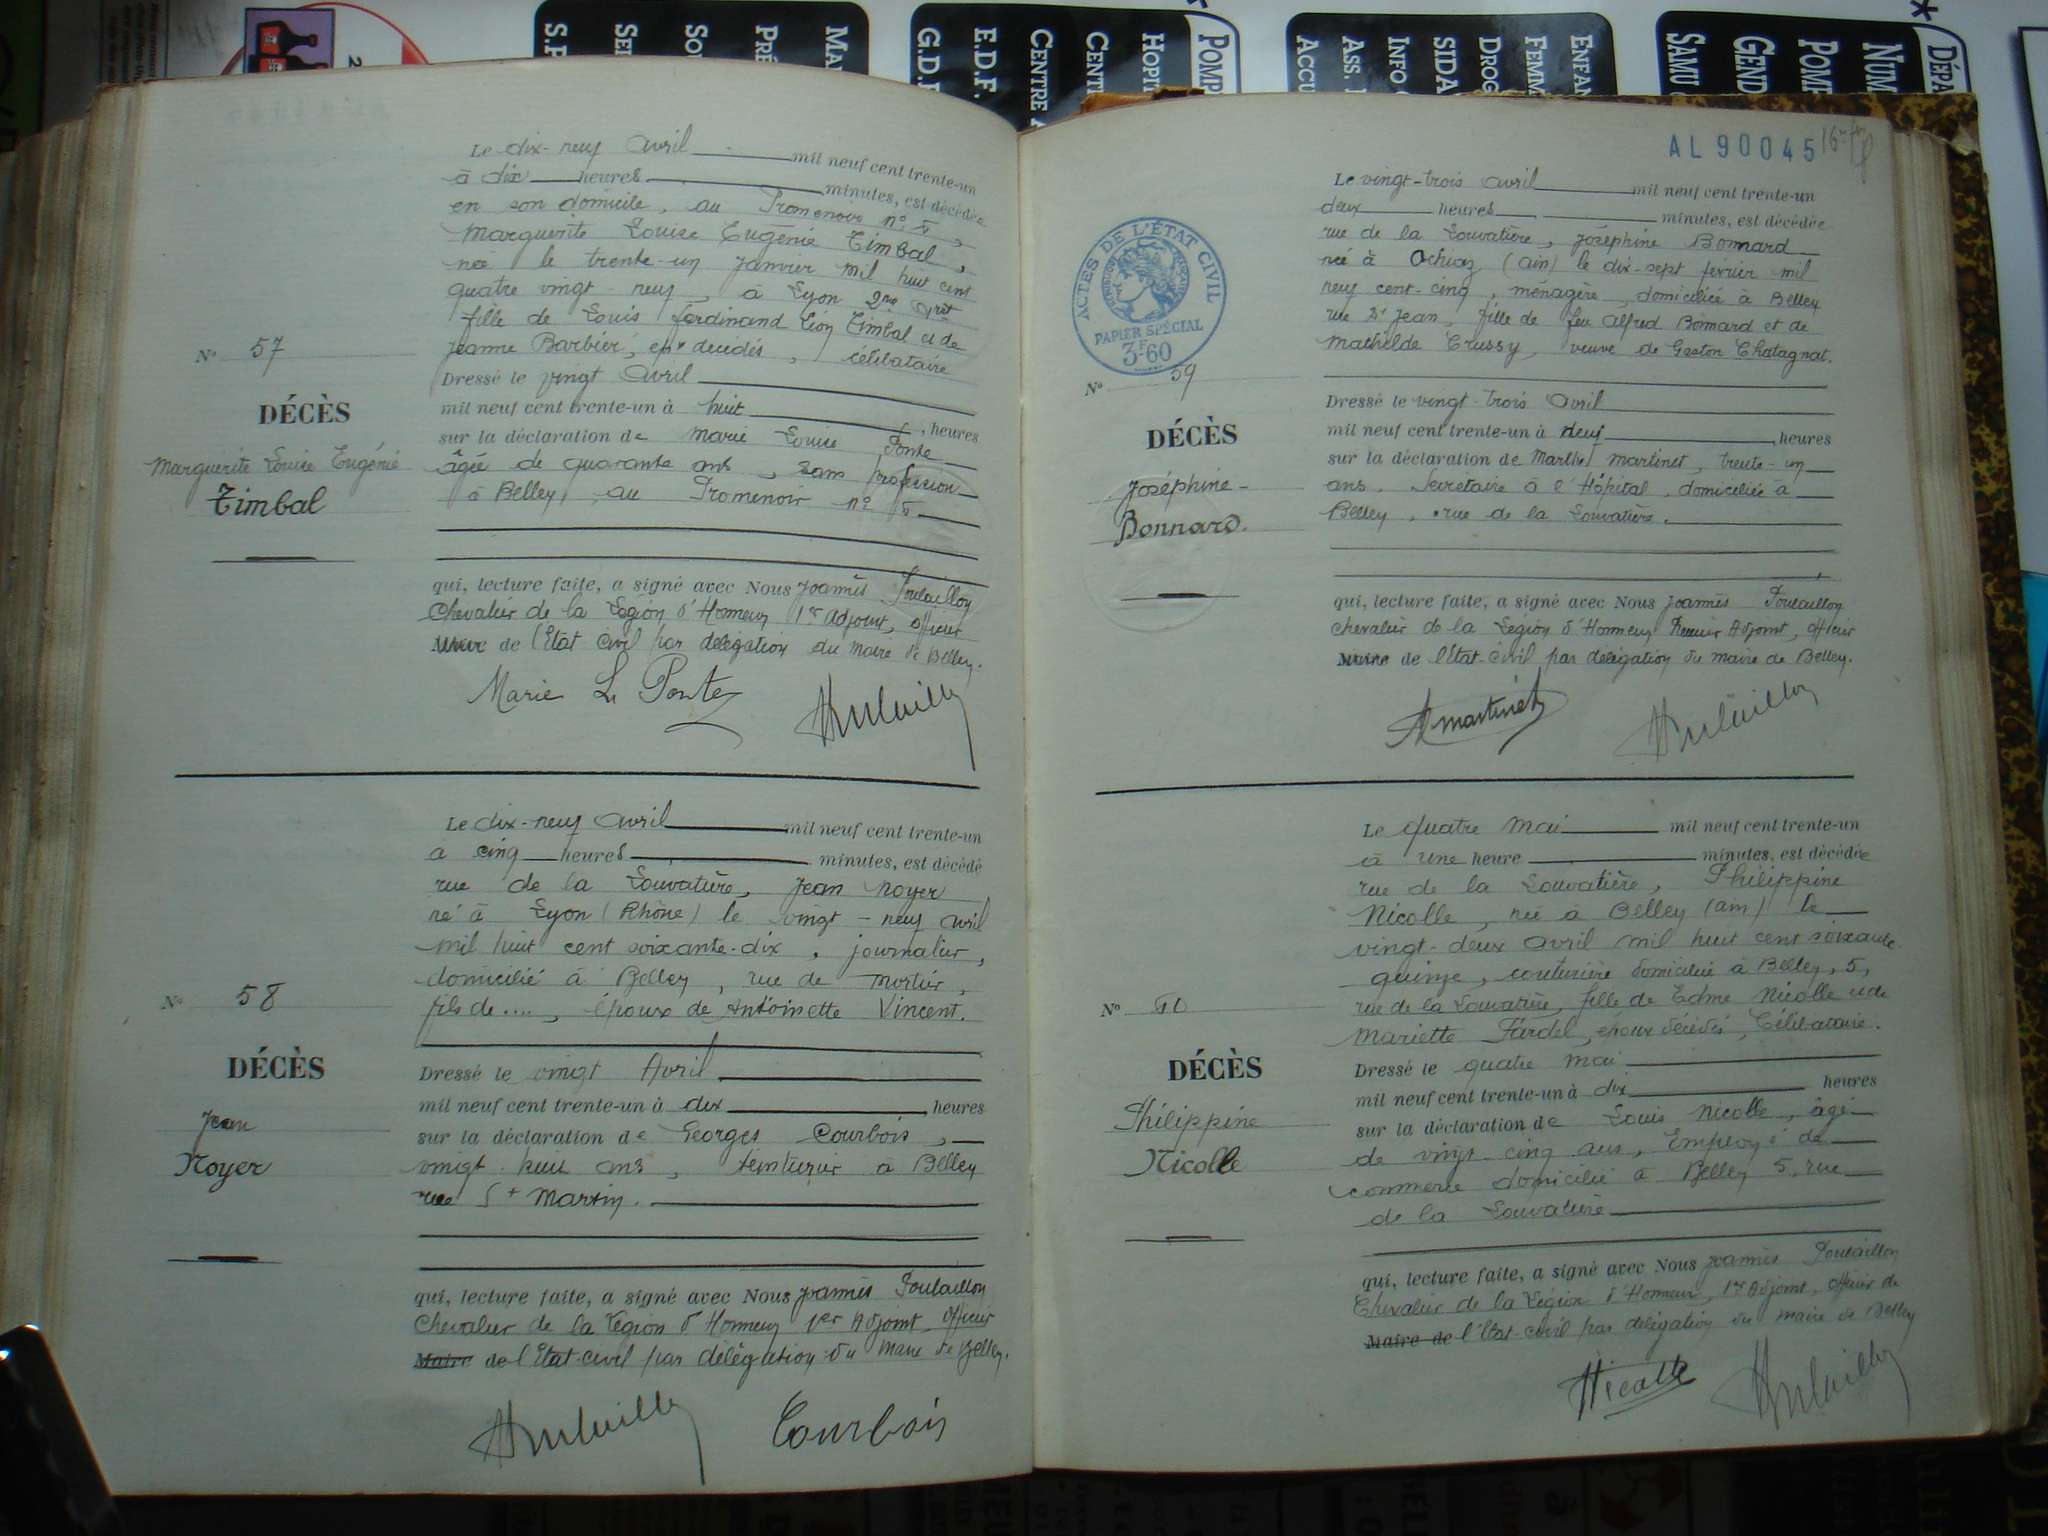 Le dix-neuf avril mil neuf cent trente-un
à dix heures minutes, est décédée
en son domicile, au Promenoir n°
Marguerite Louise Eugénie Timbal,
née le trente-un janvier mil huit cent
quatre vingt-neuf, à Lyon 2me arrt
fille de Louis Ferdinand Léon Timbal et de
Jeanne Barbier, épx décédés, célibataire
Dressé le vingt avril
mil neuf cent trente-un à huit, heures
sur la déclaration de Marie Louise Ponte
âgée de quarante ans, sans profession
à Belley au Promenoir n°
N° 57
DÉCÈS
Marguerite Louise Eugénie
Timbal
qui, lecture faite, a signé avec Nous Joannès Poulaillon
Chevalier de la Légion d'Honneur 1er Adjoint, officier
Maire de l'Etat civil par délégation du Maire de Belley.
Marie L Ponte
Le dix-neuf avril mil neuf cent trente-un
a cinq heures minutes, est décédé
rue de la Louvatière, Jean Noyer
né à Lyon (Rhône) le vingt-neuf avril
mil huit cent soixante-dix, journalier,
domicilié à Belley, rue de
fils de...., époux de Antoinette Vincent.
N° 58
DÉCÈS
Jean
Noyer
Dressé le vingt Avril
mil neuf cent trente-un à dix, heures
sur la déclaration de Georges Courbois,
vingt-huit ans, teinturier à Belley
rue St Martin.
qui, lecture faite, a signé avec Nous Joannès Poulaillon
Chevalier de la Légion d'Honneur 1er Adjoint, Officier
Maire de l'Etat-civil par délégation du Maire de Belley.
Courbois
AL 90045
ACTES DE L'ÉTAT CIVIL
PAPIER SPÉCIAL
3F60
Le vingt-trois avril mil neuf cent trente-un
deux heures minutes, est décédée
rue de la Louvatière, Joséphine Bonnard
née à Ochiaz (Ain) le dix-sept février mil
neuf cent-cinq, ménagère, domiciliée à Belley
rue St Jean, fille de feu Alfred Bonnard et de
Mathilde Crussy, veuve de Gaston Chatagnat.
N° 59
DÉCÈS
Joséphine
Bonnard.
Dressé le vingt-trois avril
mil neuf cent trente-un à neuf, heures
sur la déclaration de Marthe Martinet, trente-un
ans, Secrétaire à l'Hôpital, domiciliée à
Belley, rue de la Louvatière.
qui, lecture faite, a signé avec Nous Joannès Poulaillon
chevalier de la Légion d'Honneur Premier Adjoint, officier
Maire de l'Etat-civil par délégation du Maire de Belley.
Martinet
Le quatre mai mil neuf cent trente-un
à une heure minutes, est décédée
rue de la Louvatière, Philippine
Nicolle, née à Belley (Ain) le
vingt-deux avril mil huit cent soixante-
quinze, couturière domiciliée à Belley, 5,
rue de la Louvatière, fille de Edme Nicolle et de
Mariette Fardel, époux décédés, Célibataire.
N° 60
DÉCÈS
Philippine
Nicolle
Dressé le quatre mai
mil neuf cent trente-un à dix heures
sur la déclaration de Louis Nicolle, âgé
de vingt-cinq ans, Employé de
commerce domicilié à Belley 5, rue
de la Louvatière
qui, lecture faite, a signé avec Nous Joannès Poulaillon
Chevalier de la Légion d'Honneur, 1er Adjoint, officier de
Maire de l'Etat-civil par délégation du maire de Belley
Nicolle
E.D.F.
CENTRE
HOPIT
POMP
ACCU
ASS.
INFO
SIDA
DROG
FEMM
ENFAN
SAMU
GEND
POMP
NUM
DÉPA